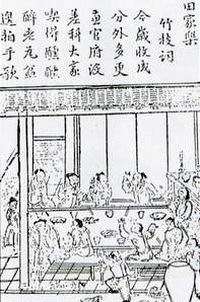 田家樂
竹枝詞
今歲收成
分外多更
兼官府沒
差科大家
喫得醺醺
醉老瓦盆
邊拍手歌